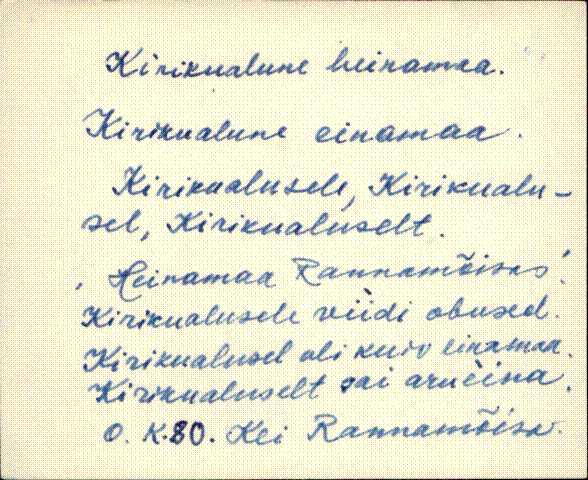 Kirikualune heinamaa.
Kirikualune einamaa.
Kirikualusele, Kirikualu-
sel, Kirikualuselt.
, Heinamaa Rannamõisas'.
Kirikualusele viidi obused.
Kirikualusel oli kuiv einamaa.
Kirikualuselt sai arueina.
O. K.80. Kei Rannamõisa.